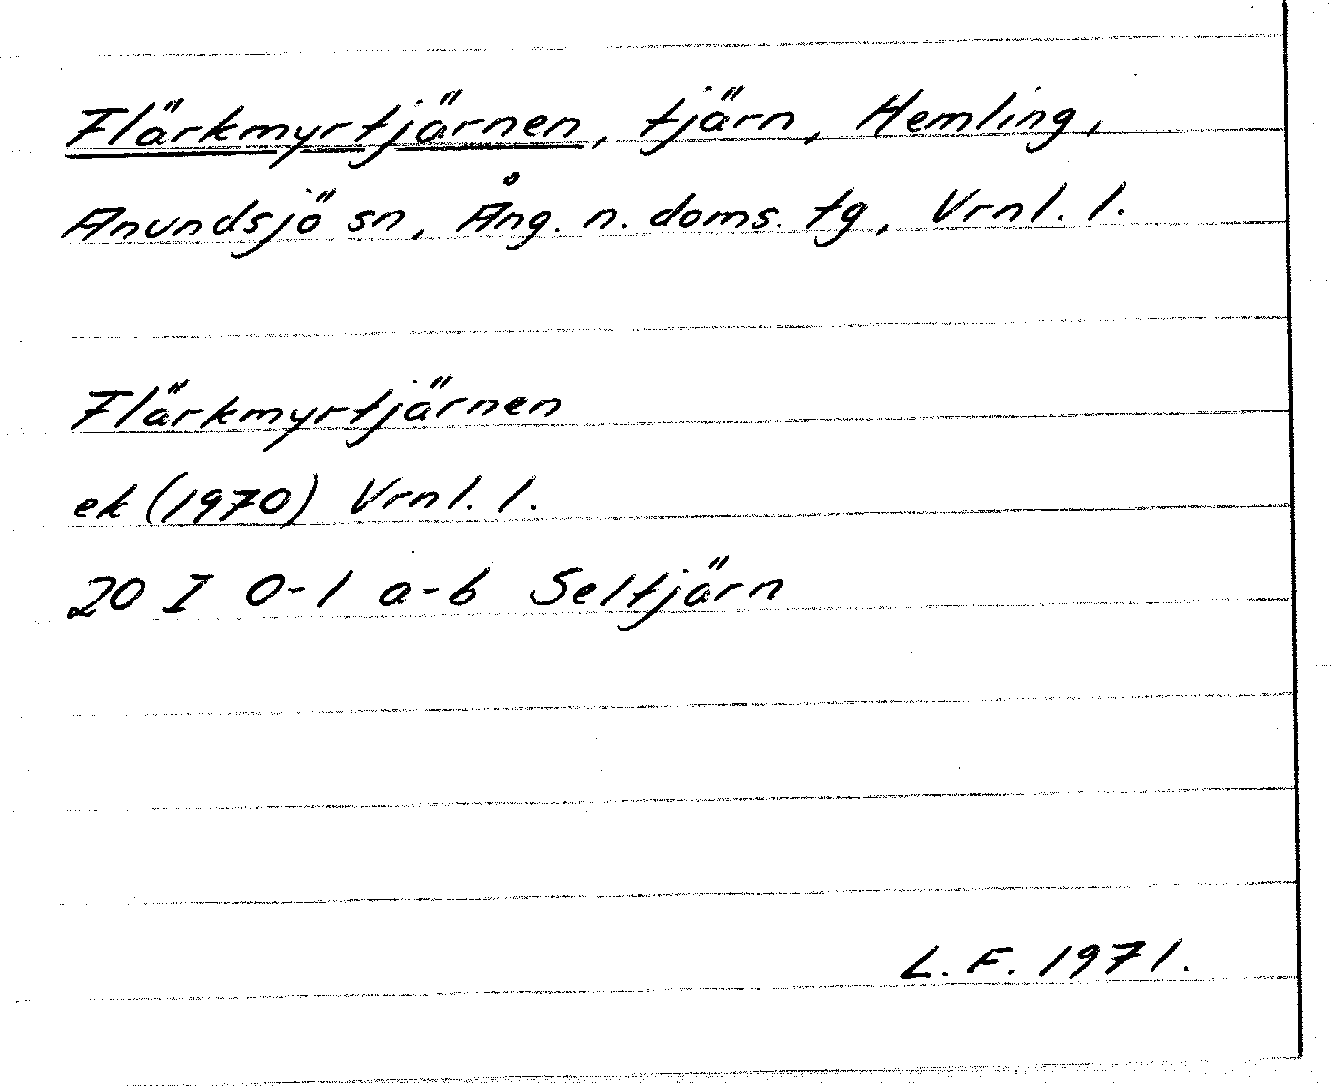 Flärkmyrtjärnen, tjärn, Hemling,
Anundsjö sn, Ång. n. doms. tg, Vrnl. l.
Flärkmyrtjärnen
ek (1970) Vrnl. l.
20 I 0-1 a-b Seltjärn
L. F. 1971.